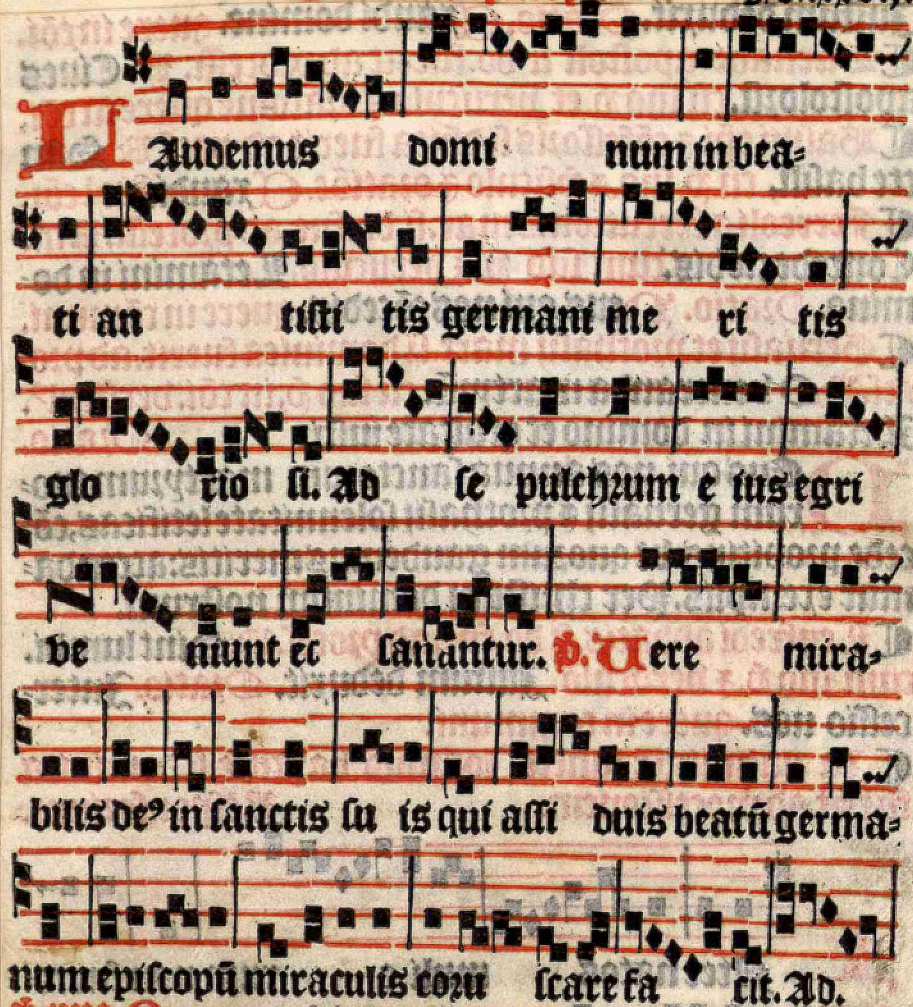 LAudemus domi num in bea-
ti an tisti tis germani me ri tis
glo rio si. Ad se pulchrum e ius egri
ve niunt et sanantur. v. Uere mira-
bilis deꝰ in sanctis su is qui assi duis beatū germa-
num episcopū miraculis coru scare fa cit. Ad.